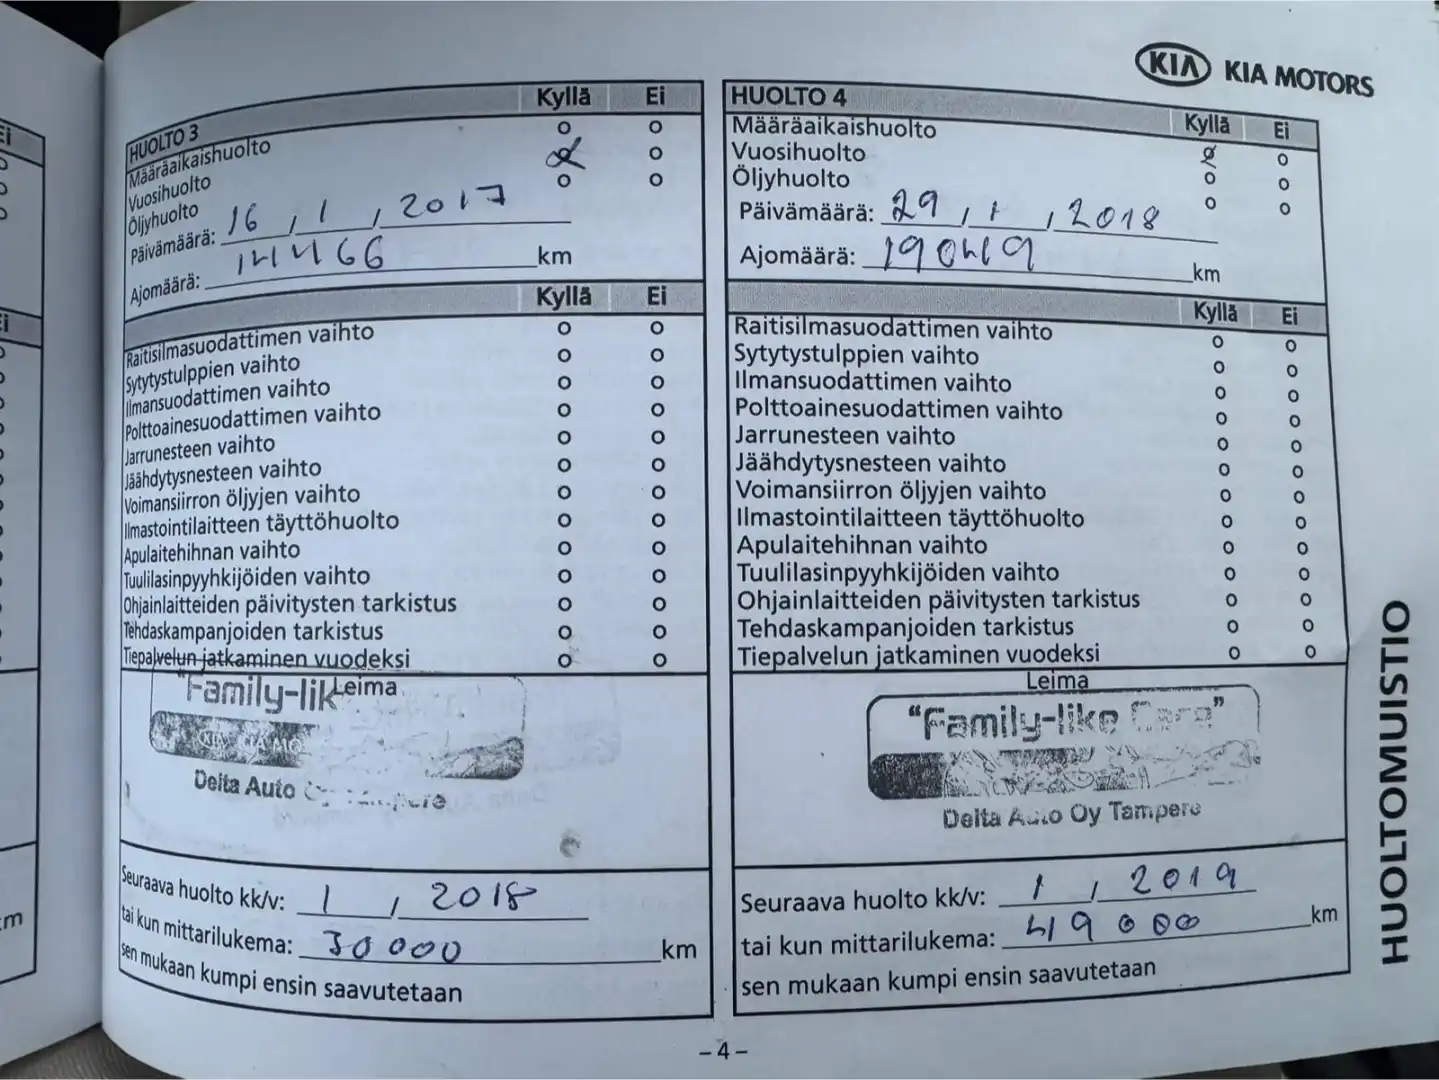 KIA KIA MOTORS
HUOLTO 3 Kyllä Ei
Määräaikaishuolto
Vuosihuolto
Öljyhuolto
Päivämäärä: 16 , 1 , 2017
Ajomäärä: 14466 km
Kyllä Ei
Raitisilmasuodattimen vaihto
Sytytystulppien vaihto
Ilmansuodattimen vaihto
Polttoainesuodattimen vaihto
Jarrunesteen vaihto
Jäähdytysnesteen vaihto
Voimansiirron öljyjen vaihto
Ilmastointilaitteen täyttöhuolto
Apulaitehihnan vaihto
Tuulilasinpyyhkijöiden vaihto
Ohjainlaitteiden päivitysten tarkistus
Tehdaskampanjoiden tarkistus
Tiepalvelun jatkaminen vuodeksi
Leima
"Family-lik
KIA KIA MO
Delta Auto
Seuraava huolto kk/v: 1 , 2018
tai kun mittarilukema: 30000 km
sen mukaan kumpi ensin saavutetaan
HUOLTO 4 Kyllä Ei
Määräaikaishuolto
Vuosihuolto
Öljyhuolto
Päivämäärä: 29 , 1 , 2018
Ajomäärä: km
Kyllä Ei
Raitisilmasuodattimen vaihto
Sytytystulppien vaihto
Ilmansuodattimen vaihto
Polttoainesuodattimen vaihto
Jarrunesteen vaihto
Jäähdytysnesteen vaihto
Voimansiirron öljyjen vaihto
Ilmastointilaitteen täyttöhuolto
Apulaitehihnan vaihto
Tuulilasinpyyhkijöiden vaihto
Ohjainlaitteiden päivitysten tarkistus
Tehdaskampanjoiden tarkistus
Tiepalvelun jatkaminen vuodeksi
Leima
"Family-like Care"
Delta Auto Oy Tampere
Seuraava huolto kk/v: 1 , 2019
tai kun mittarilukema: 49000 km
sen mukaan kumpi ensin saavutetaan
HUOLTOMUISTIO
- 4 -